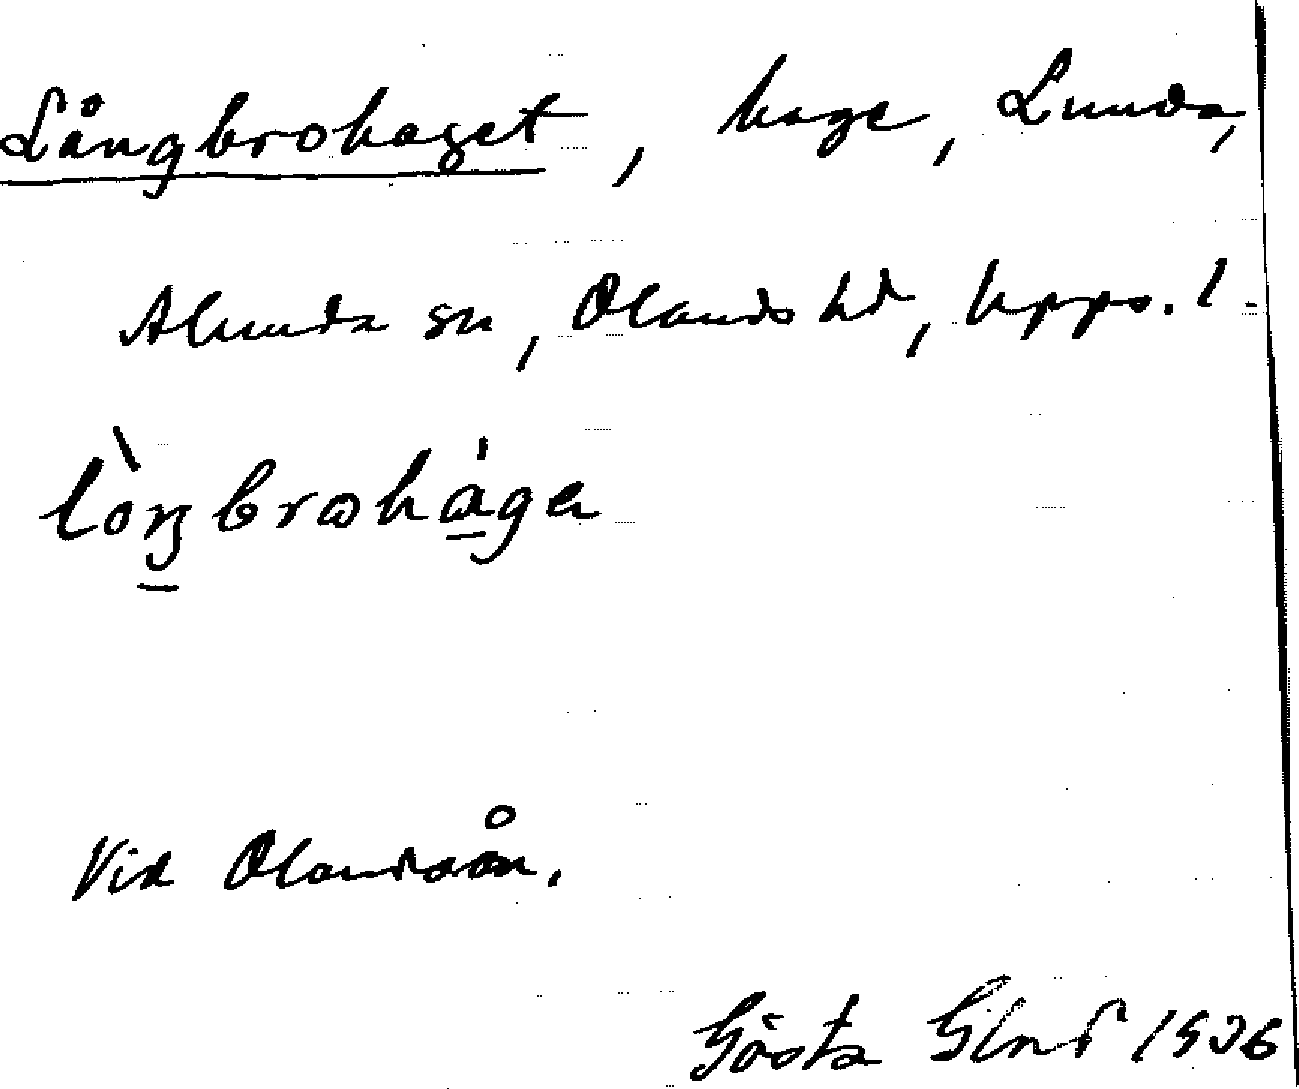 Långbrohaget, hage, Lunda,
Alunda sn, Olands hd, Upps. l.
lòŋbrωhága
Vid Olandsån.
Gösta 1936